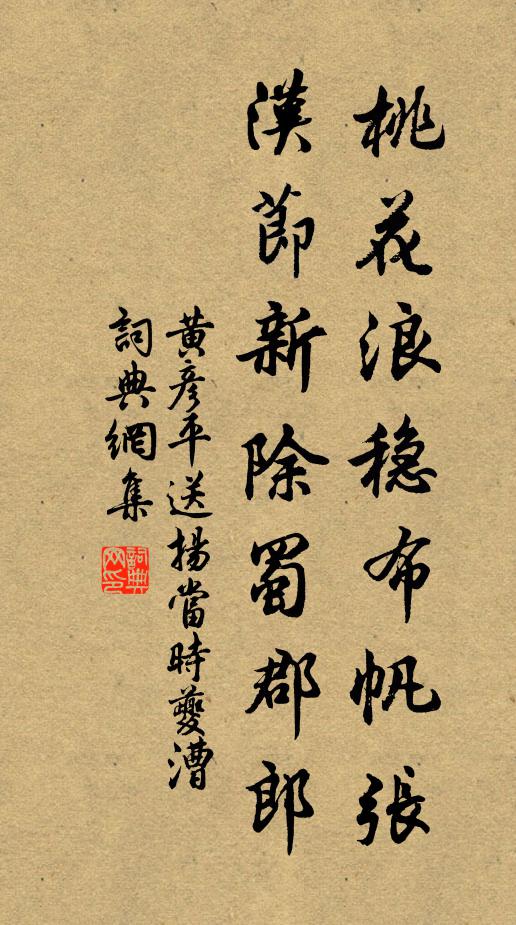 桃花浪稳布帆張
漢節新除蜀郡郎
黃彥平送揚當時夔漕
詞典網集
詞典网印